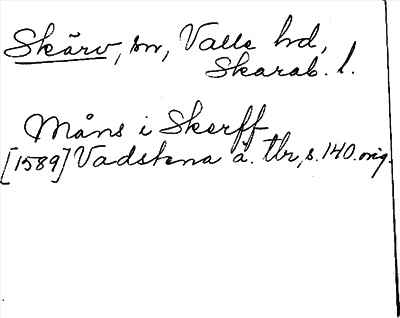 Skärv, sn, Valle hd,
Skarab. l.
Måns i Skerff
[1589] Vadstena ä. tbr, s. 140. orig.